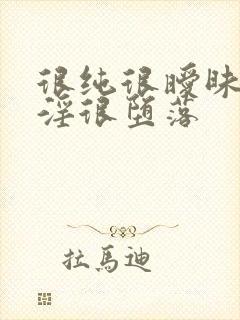 很纯很暧昧
淫很堕落
拉马迪